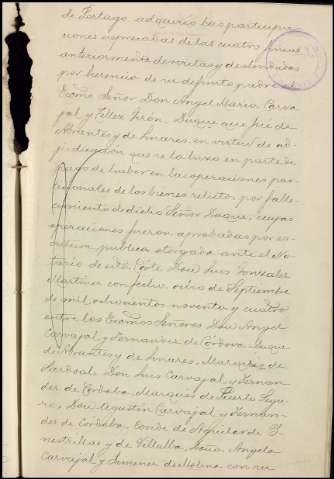 de Portago, adquirió las participa-
ciones expresadas de las cuatro fincas
anteriormente descritas y deslindadas
por herencia de su difunto padre el
Excmo Señor Don Angel Maria Carva-
jal y Tellez Girón, Duque que fué de
Abrantes y de Linares, en virtud de ad-
judicación que se la hizo en parte de
pago de haber en las operaciones par-
cionales de los bienes relictos por falle-
cimiento de dicho Señor Duque, cuyas
operaciones fueron aprobadas por es-
critura pública otorgada ante el No-
tario de esta Corte Don Luis Gonzalez
Martinez con fecha ocho de Septiembre
de mil ochocientos noventa y cuatro
entre los Excmos Señores Don Angel
Carvajal y Fernandez de Córdova, Duque
de Abrantes y de Linares, Marqués de
Sardoal, Don Luis Carvajal y Fernan-
dez de Córdoba Marqués de Puerto Segu-
ro, Don Agustin Carvajal y Fernan-
dez de Córdoba, Conde de Aguilar de Y-
nestrillas y de Villalba, Doña Angela
Carvajal y Jimenez de Molina con su